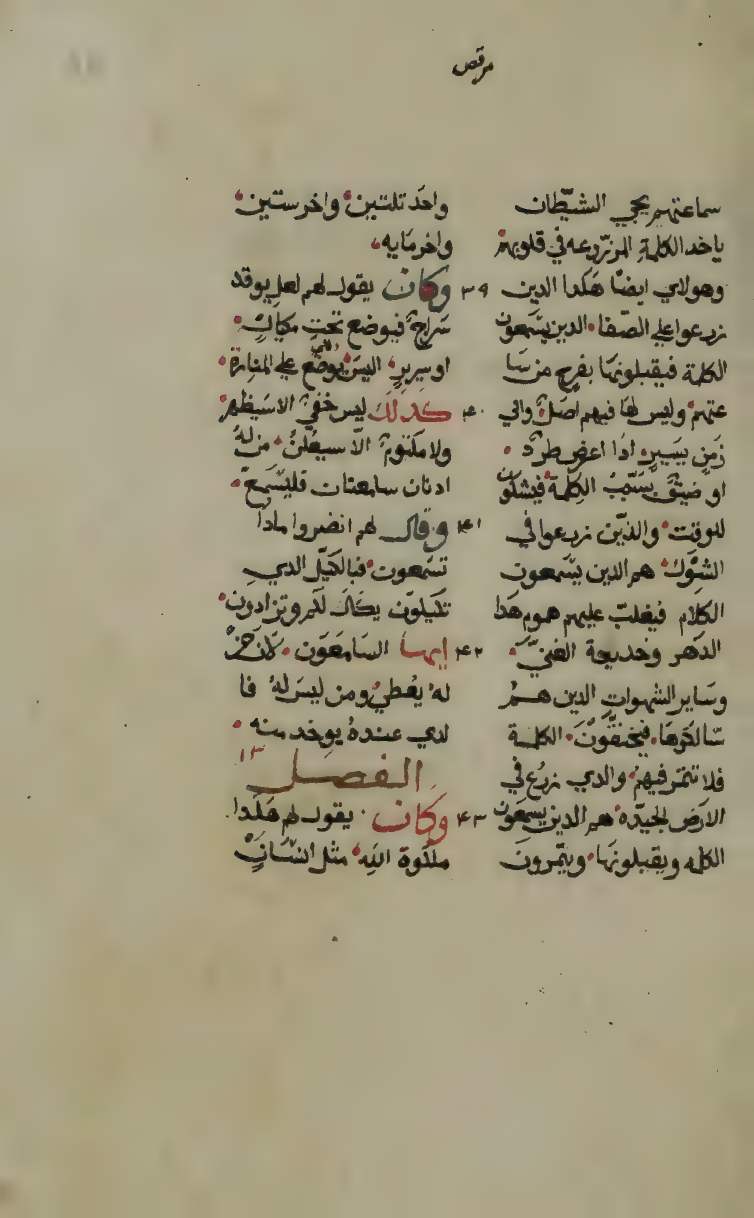 مرقص
سماعتهم يجي الشيطان
ياخد الكلمة المزرعه في قلوبهم
وهولاي ايضا هكدا الدين
زرعوا علي الصفا الدين يسمعون
الكلمة فيقبلونها بفرح من سا
عتهم وليس لها فيهم اصل والي
زمن يسير ادا اعرض طرد
او ضيق بسبب الكلمة فيشكون
للوقت والدين زرعوا في
الشوك هم الدين يسمعون
الكلام فيغلب عليهم هموم هدا
الدهر وخديعة الغني
وساير الشهوات الدين هم
سالكوها فيخنقون الكلمة
فلا تتمر فيهم والدي زرع في
الارض الجيده هم الدين يسمعون
الكلمه ويقبلونها ويتمرون
واحد تلتين واخر ستين
واخر مايه
٣٩ وكان يقول لهم لعل يوقد
سراج فيوضع تحت مكيال
او سرير اليس يوضع علي المنارة
٤٠ كدلك ليس خفي الا سيظهر
ولا مكتوم الا سيعلن من له
ادنان سامعتان فليسمع
٤١ وقال لهم انضروا مادا
تسمعون فبالكيل الدي
تكيلون يكال لكم وتزادون
٤٢ ايها السامعون
له يعطي ومن ليس له فا
لدي عنده يوخد منه
الفصل ١٣
٤٣ وكان يقول لهم هكدا
ملكوة الله مثل انسان